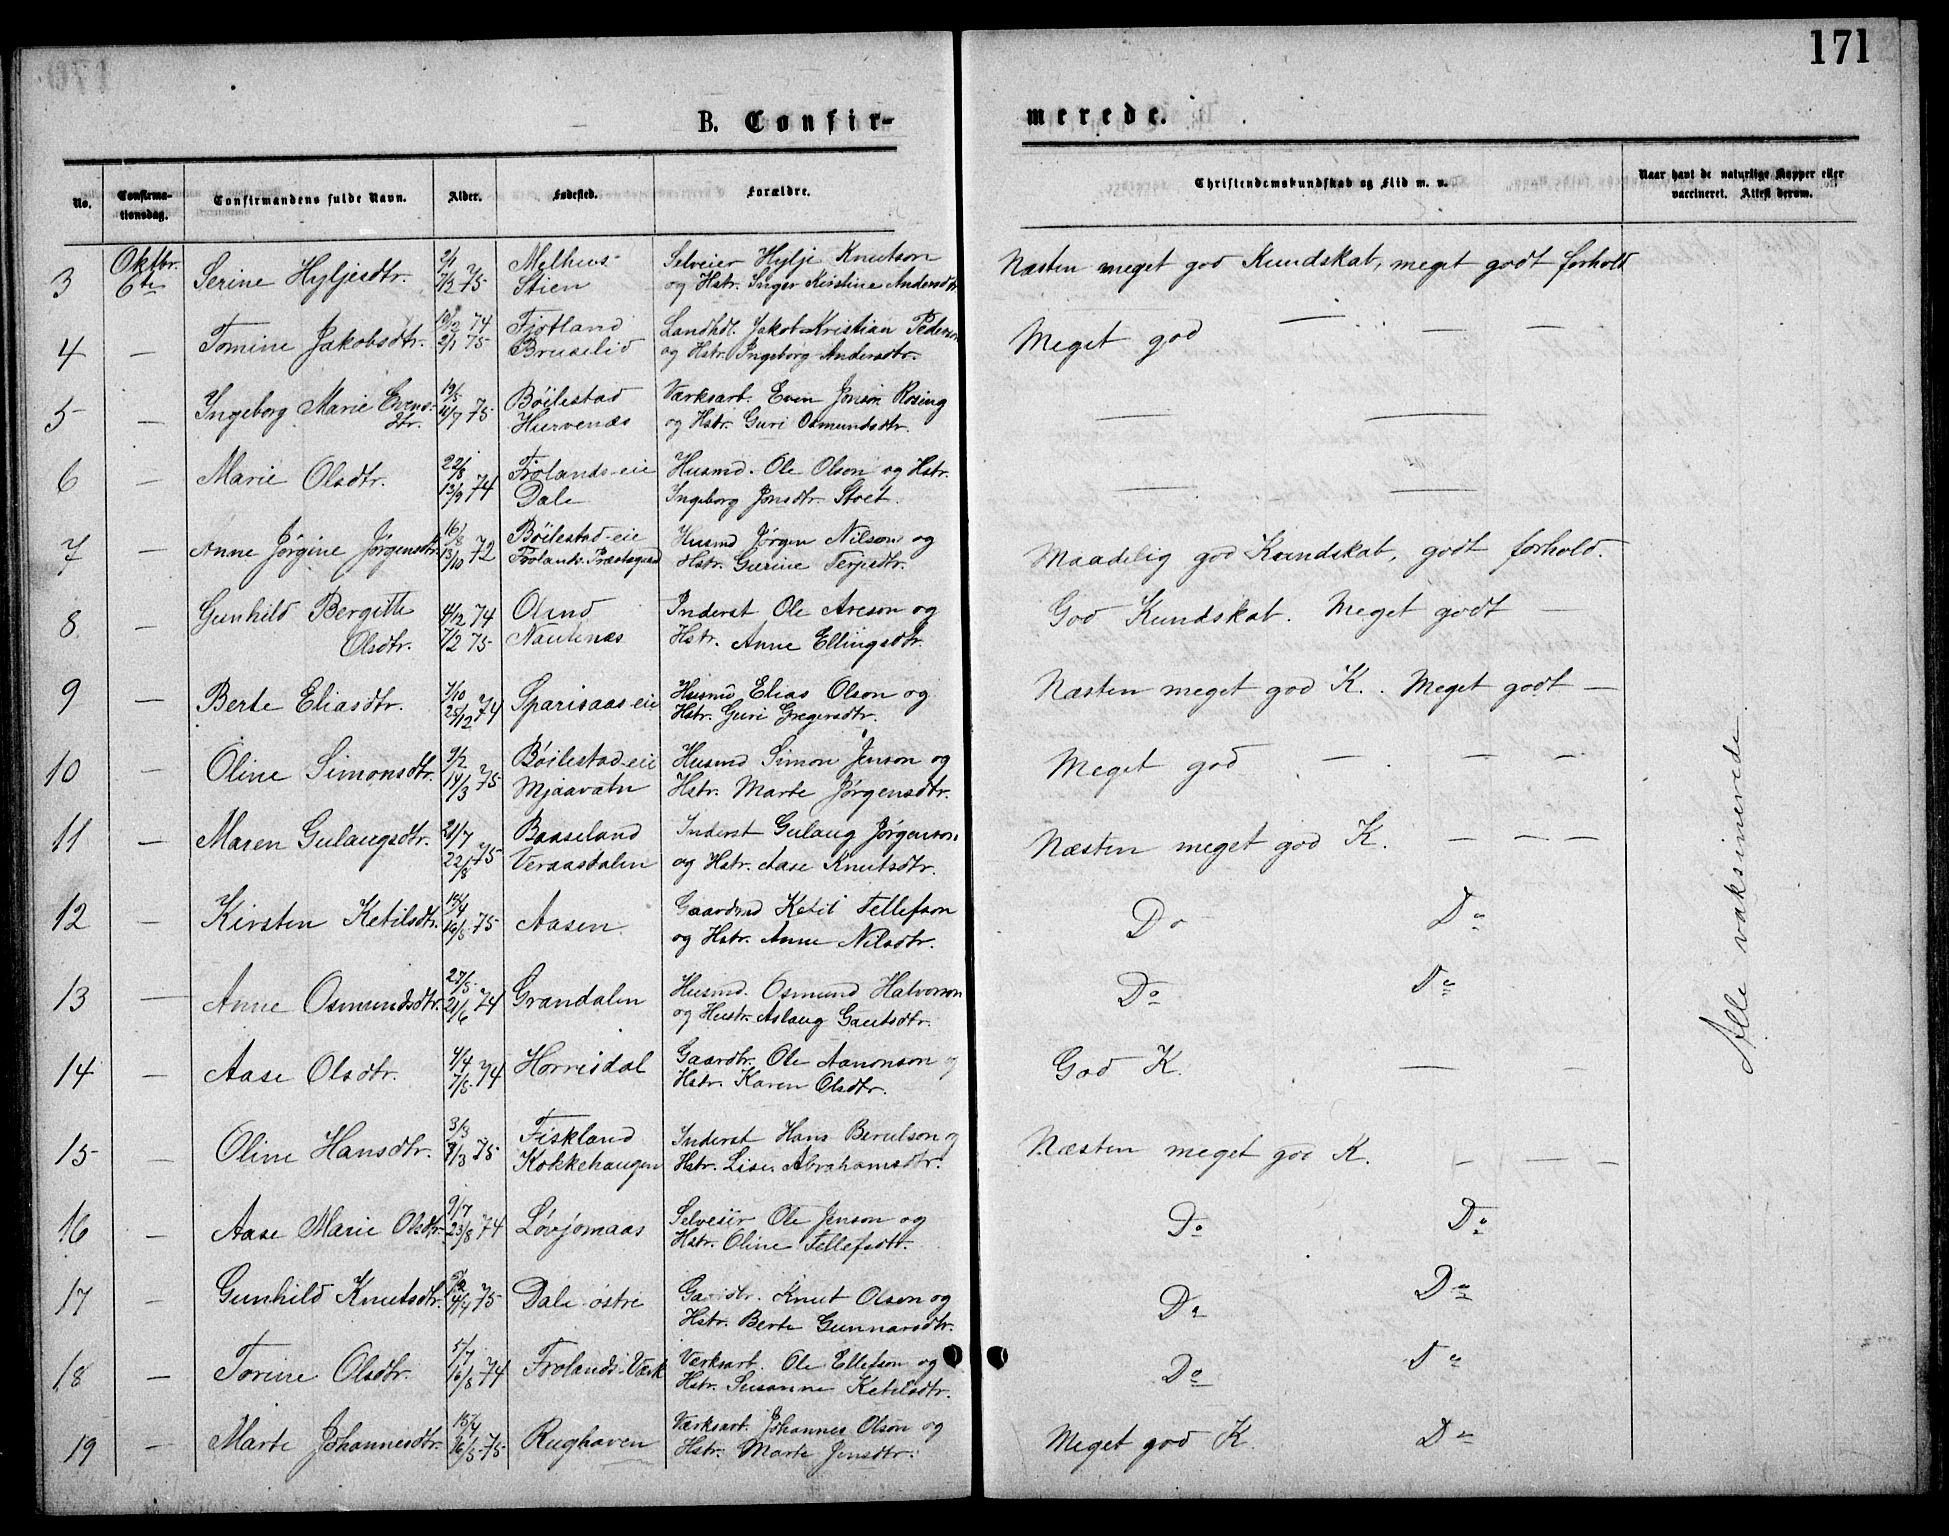 171
B. Confir- merede.
No. Confirma-tionsdag. Confirmandens fulde Navn. Alder. Fødested. Forældre. Christendomskundskab og Flid m. v. Naar havt de naturlige Kopper eller vaccineret. Attest derom.
3 Oktbr. Serine Hyljesdtr. Melhus- Selveier Hylje Knutson Næsten meget god Kundskab, meget godt forhold
6te 7/2 75 Stien og Hstr. Inger Kirstine Andersdtr.
4 — Tomine Jakobsdtr. 10/12 74 Fjotland Landhdl. Jakob Kristian Pedersen Meget god — — —
2/1 75 Bruselid og Hstr. Ingeborg Andersdtr.
5 — Ingeborg Marie Evens- 19/5 Bøilestad Værksarb. Even Jonson Rosing — —
dtr. 11/7 75 Hurvenæs og Hstr. Guri Osmundsdtr.
6 — Marie Olsdtr. 22/8 Frolands-eie Husmd. Ole Olson og Hstr. — —
13/9 74 Dale Ingeborg Jonsdtr. Stoet.
7 — Anne Jørgine Jørgensdtr. 16/8 Bøilestad-eie Husmd Jørgen Nilson og Maadelig god Kundskab, godt forhold.
13/10 72 Frolands Præstegaard Hstr. Gurine Terjedtr.
8 — Gunhild Bergitte 4/12 74 Oland Inderst Ole Areson og God Kundskab. Meget godt —
Olsdtr. 7/2 75 Nautenæs Hstr. Anne Ellingsdtr.
9 — Berte Eliasdtr. 7/10 Sparisaas-eie Husmd Elias Olson og Næsten meget god K. Meget godt —
25/12 74 Hstr. Guri Gregersdtr.
10 — Oline Simonsdtr. 9/2 Bøilestad-eie Husmd Simon Jenson og Meget god — — —
14/3 75 Mjaavatn Hstr. Marte Jørgensdtr.
11 — Maren Gulaugsdtr. 21/7 Basseland Inderst Gulaug Jørgenson Næsten meget god K. — — —
22/8 75 Veraasdalen og Hstr. Aase Knutsdtr.
12 — Kirsten Ketilsdtr. Aasen Gaardmd Ketil Tellefson Do Do
16/5 75 og Hstr. Anne Nilsdtr.
13 — Anne Osmundsdtr. 27/5 Grandalen Husmd. Osmund Halvorson Do Do
21/6 74 og Hustr. Aslaug Gautsdtr.
14 — Aase Olsdtr. 4/4 Horrisdal Gaardbr. Ole Aanonson og God K. — —
7/5 74 Hstr. Karen Olsdtr.
15 — Oline Hansdtr. 3/3 Fiskland Inderst Hans Berulson og Næsten meget god K. — — —
75 Kokkehaugen Hstr. Lise Abrahamsdtr.
16 — Aase Marie Olsdtr. 9/7 Løvjomaas Selveier Ole Jenson og Do Do
23/8 74 Hstr. Oline Tellefsdtr.
17 — Gunhild Knutsdtr. Dale østre Gaardbr. Knut Olsen og Do Do
4/4 75 Hstr. Berte Gunnarsdtr.
18 — Torine Olsdtr. 5/7 Frolands-Værk Værksarb. Ole Ellefson og Do Do
16/8 74 Hstr. Susanne Ketilsdtr.
19 — Marte Johannesdtr. 18/4 Rughaven Værksarb. Johannes Olson og Meget god K. Do
16/5 75 Hstr. Marte Jensdtr.
Alle vaksinerede